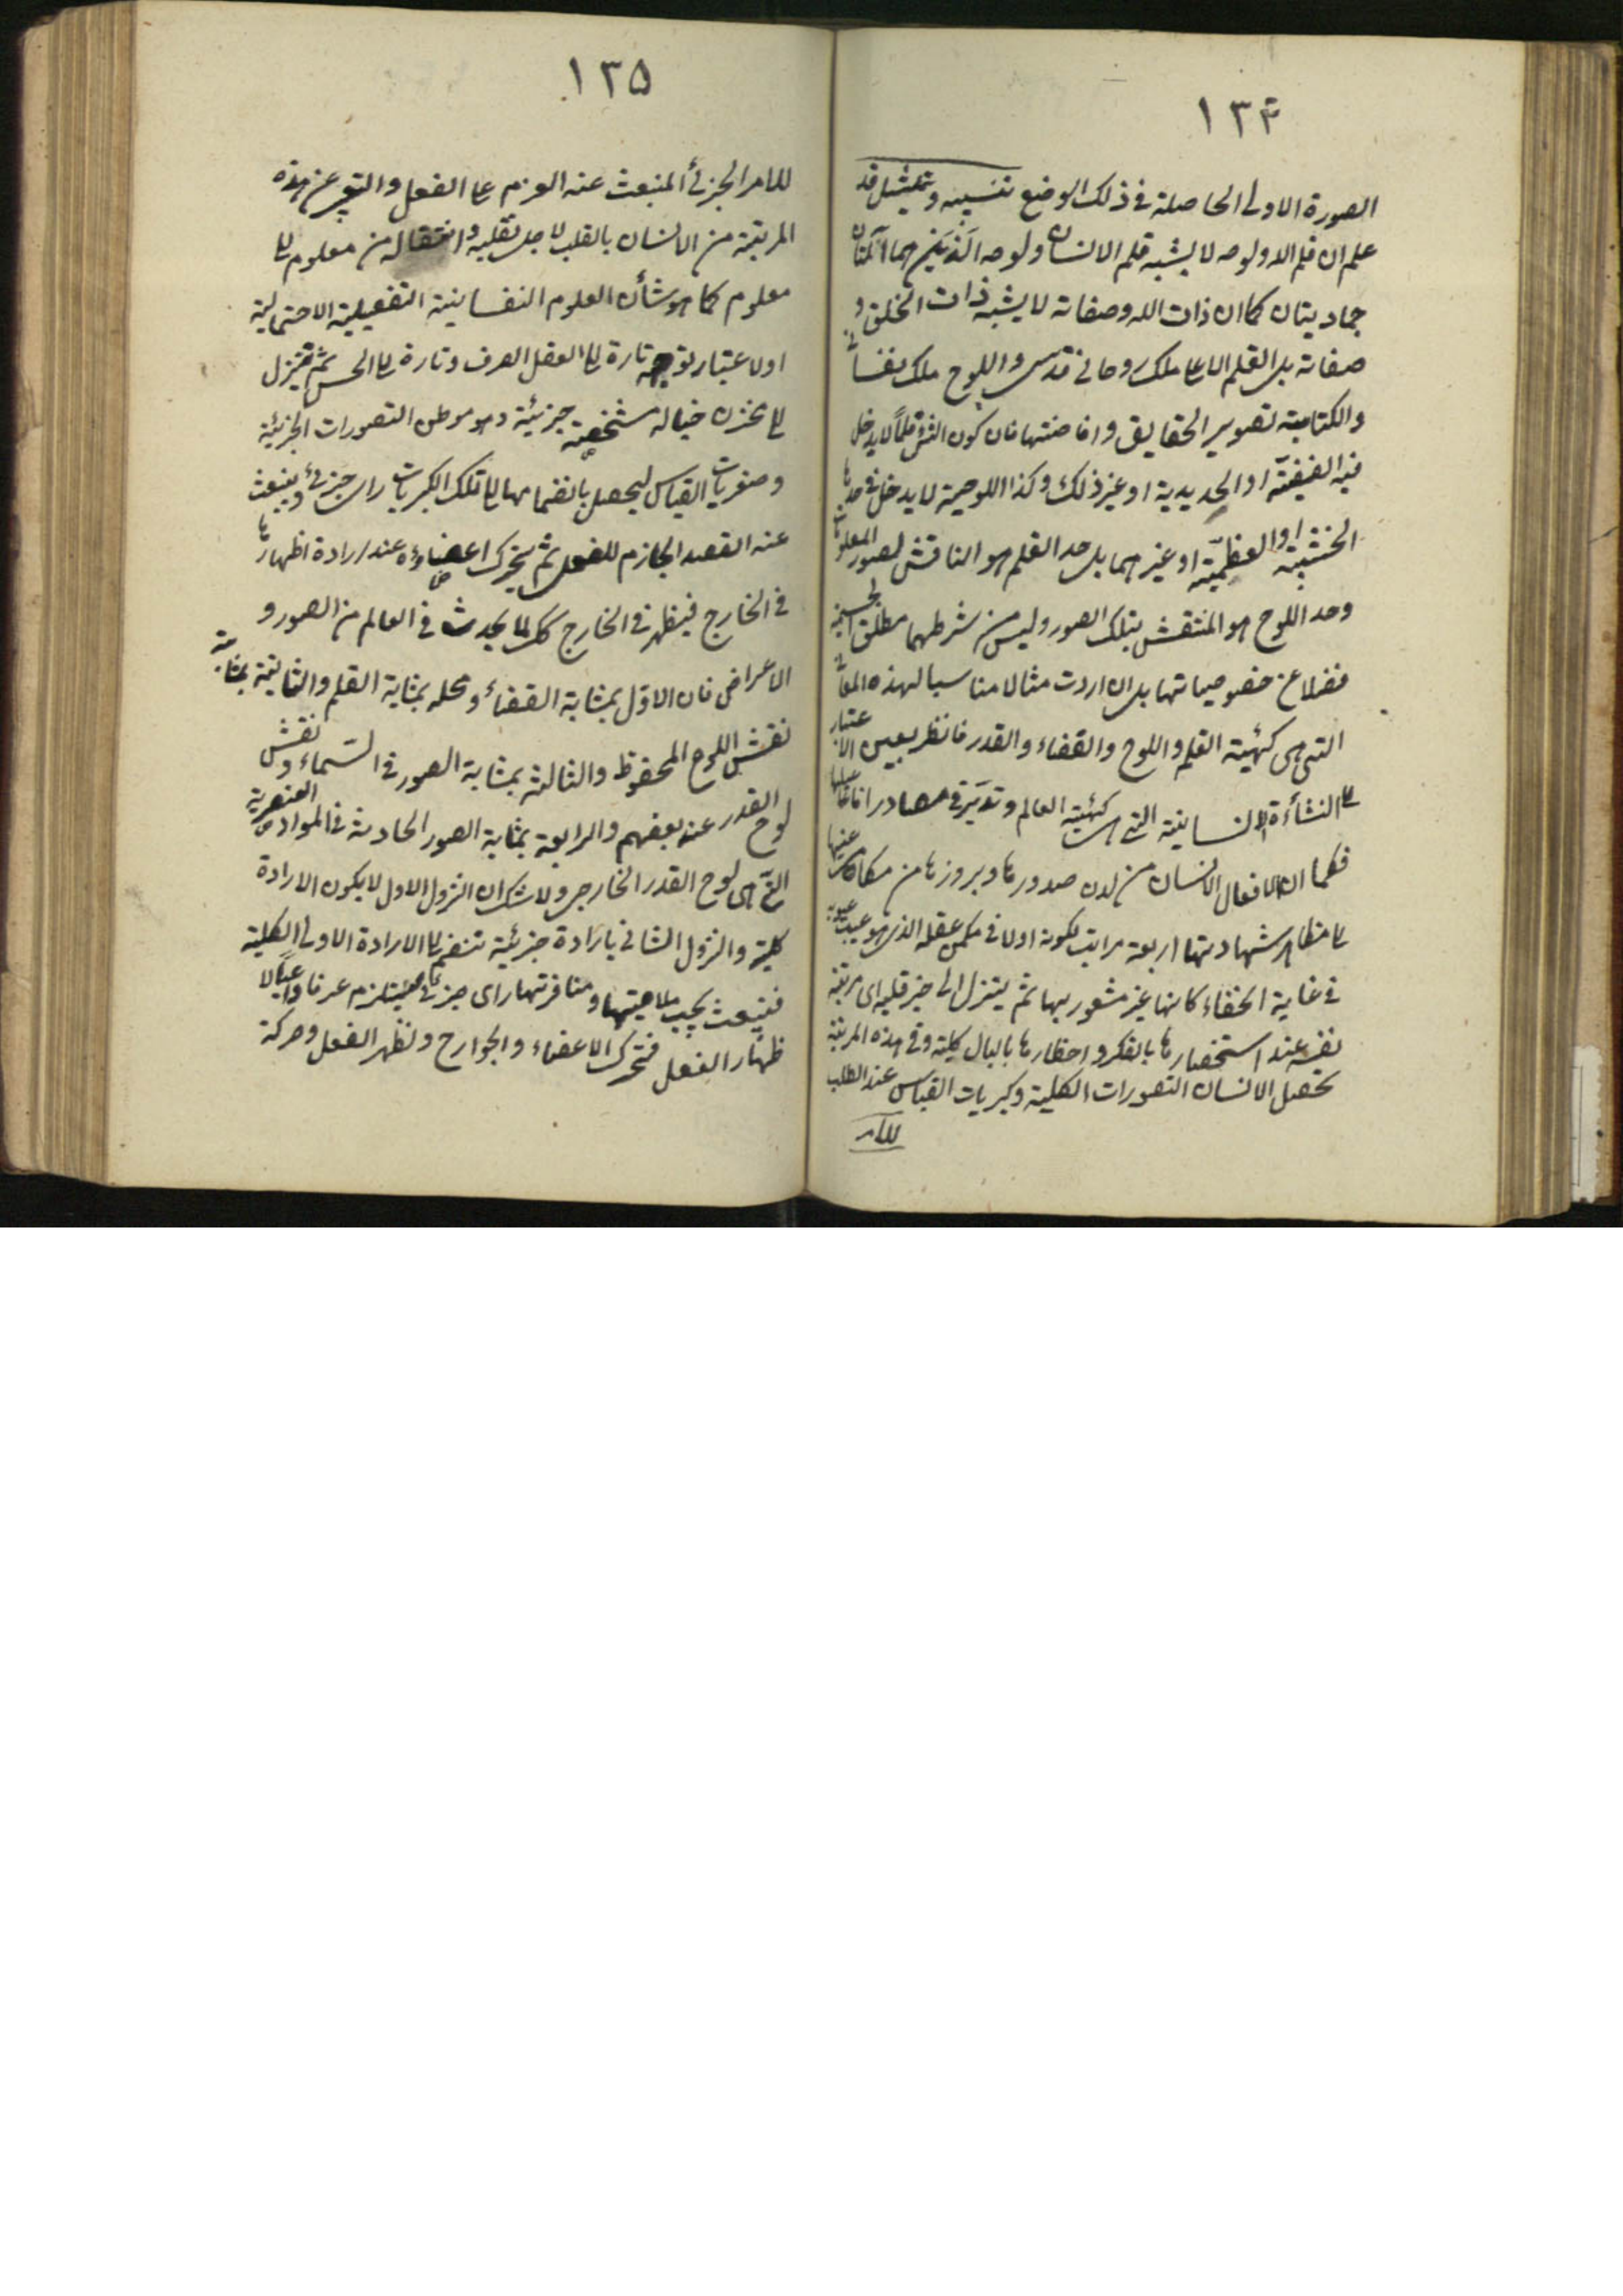 ١٣۴
الصورة الاولى الحاصلة فى ذلك الوضع تنبيه وتمثيل قد
علم ان قلم الله ولوحه لا يشبه قلم الانسان ولوحه الّذين هما آلتان
جماديتان كما ان ذات الله وصفاته لا يشبه ذات الخلق و
صفاته بل القلم الاعلى ملك روحانى قدسى واللوح ملك نفسانى
والكتابة تصوير الحقايق وافاضتها فان كون الشئ قلماً لا يدخل
فيه القصبيّة او الحديدية او غير ذلك وكذا اللوحية لا يدخل فى حدها
الخشبيّة او العظميّة او غيرهما بل حد القلم هو الناقش لصور المعلومات
وحد اللوح هو المنتقش بتلك الصور وليس من شرطهما مطلق الجسمية
فضلا عن خصوصياتها بل ان اردت مثالا مناسبا لهذه المعانى
التى هى كهيئة القلم واللوح والقضاء والقدر فانظر بعين الاعتبار
الى النشأة الانسانية التى هى كهيئة العالم وتدبّر فى مصادر افاعيلها
فكما ان لافعال الانسان من لدن صدورها وبروزها من مكامن غيبها
الى مظاهر شهادتها اربعة مراتب لكونه اولا فى مكمن عقله الذى هو غيب غيوبه
فى غاية الخفاء كانها غير مشعور بها ثم يتنزل الى حيز قلبه اى مرتبة
نفسه عند استحضارها بالفكر واحظارها بالبال كلية وفى هذه المرتبة
تحصل الانسان التصورات الكلية وكبريات القياس عند الطلب
للامر
١٣٥
للامر الجزئى المنبعث عنه العزم على الفعل والتعبير عن هذه
المرتبة من الانسان بالقلب لاجل تقلبه وانتقاله من معلوم الى
معلوم كما هو شأن العلوم النفسانية التفصيلية
او لاعتبار توجهه تارة الى العقل الصرف وتارة الى الحس ثم يتنزل
الى مخزن خياله مشخصة جزئية وهو موطن التصورات الجزئية
وصغريات القياس ليحصل بانضمامها الى تلك الكبريات راى جزئى وينبعث
عنه القصد الجازم للفعل ثم يتحرك اعضاؤه عند ارادة اظهارها
فى الخارج فيظهر فى الخارج كذلك يحدث فى العالم من الصور و
الاعراض فان الاوّل بمثابة القضاء ومحله بمثابة القلم والثانية بمثابة
نقش اللوح المحفوظ والثالثة بمثابة الصور فى السّماء ونقش
لوح القدر عند بعضهم والرابعة بمثابة الصور الحادثة فى المواد العنصرية
الّتى هى لوح القدر الخارجى ولا شك ان النزول الاول لا يكون الا بارادة
كلية والنزول الثانى بارادة جزئية تنضم الى الارادة الاولى الكلية
فينبعث بحسب ملايمتها ومنافرتها راى جزئى يستلزم عزما داعيا لا
ظهار الفعل فتحرك الاعضاء والجوارح وتظهر الفعل وحركة